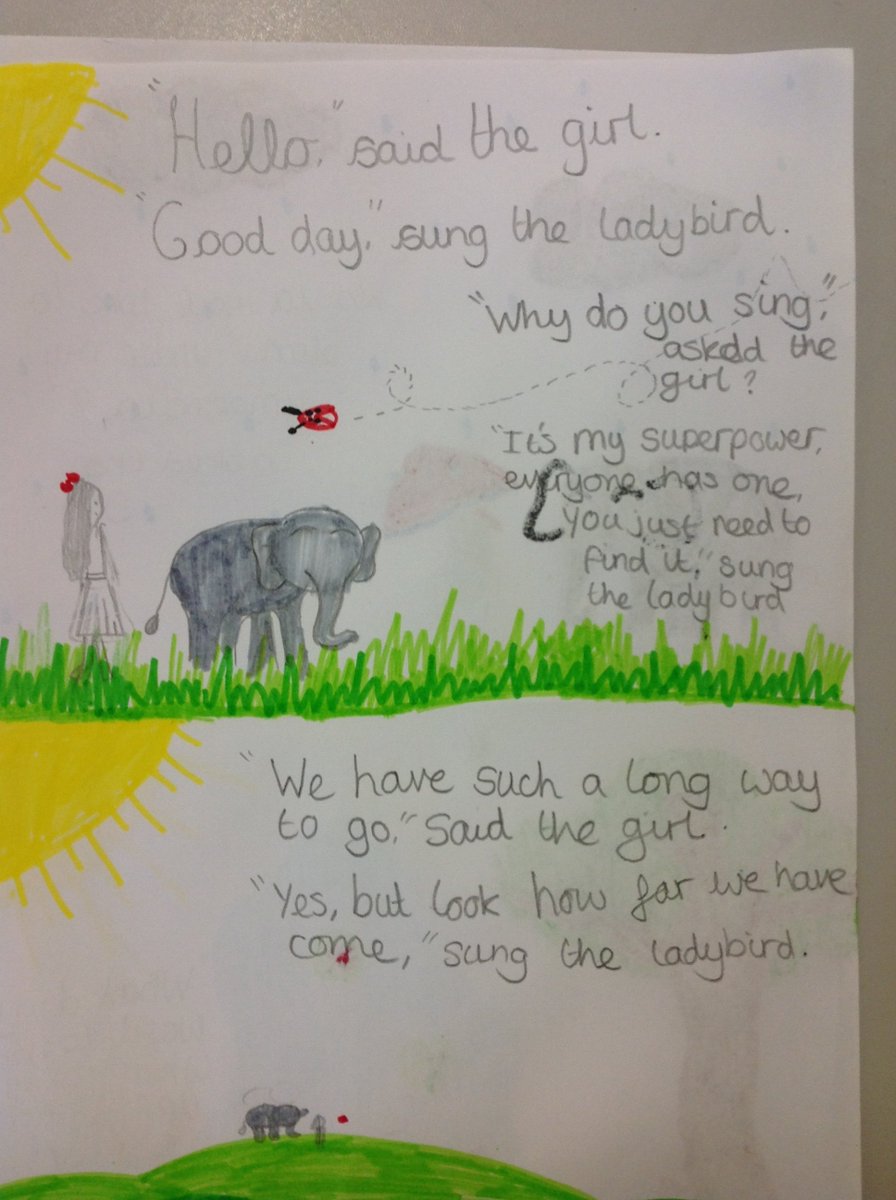 "Hello," said the girl.
"Good day," sung the ladybird.
"Why do you sing,"
askedd the
girl?
"It's my superpower,
everyone has one,
you just need to
find it," sung
the ladybird
"We have such a long way
to go," said the girl.
"Yes, but look how far we have
come," sung the ladybird.